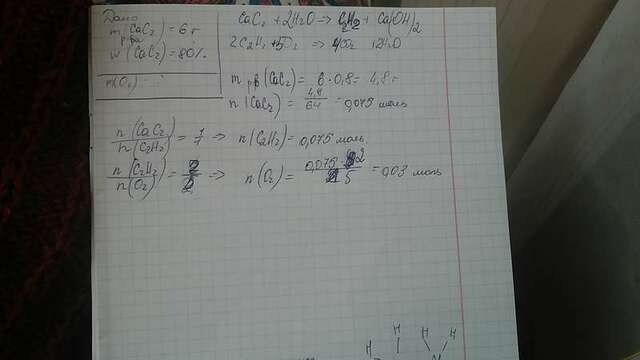 Дано
m р-ра (CaC₂) = 6 г
w (CaC₂) = 80%.
n(O₂) -
CaC₂ + 2H₂O => C₂H₂ + Ca(OH)2
2C₂H₂ + 5O₂ => 4CO₂ + 2H₂O
m р.в (CaC₂) = 6 · 0,8 = 4,8 г
n (CaC₂) = 4,8/64 = 0,075 моль
n (CaC₂)/n (C₂H₂) = 1/1 => n (C₂H₂) = 0,075 моль.
n (C₂H₂)/n (O₂) = 2/5 => n (O₂) = 0,075 · 2/5 = 0,03 моль
H H H
H